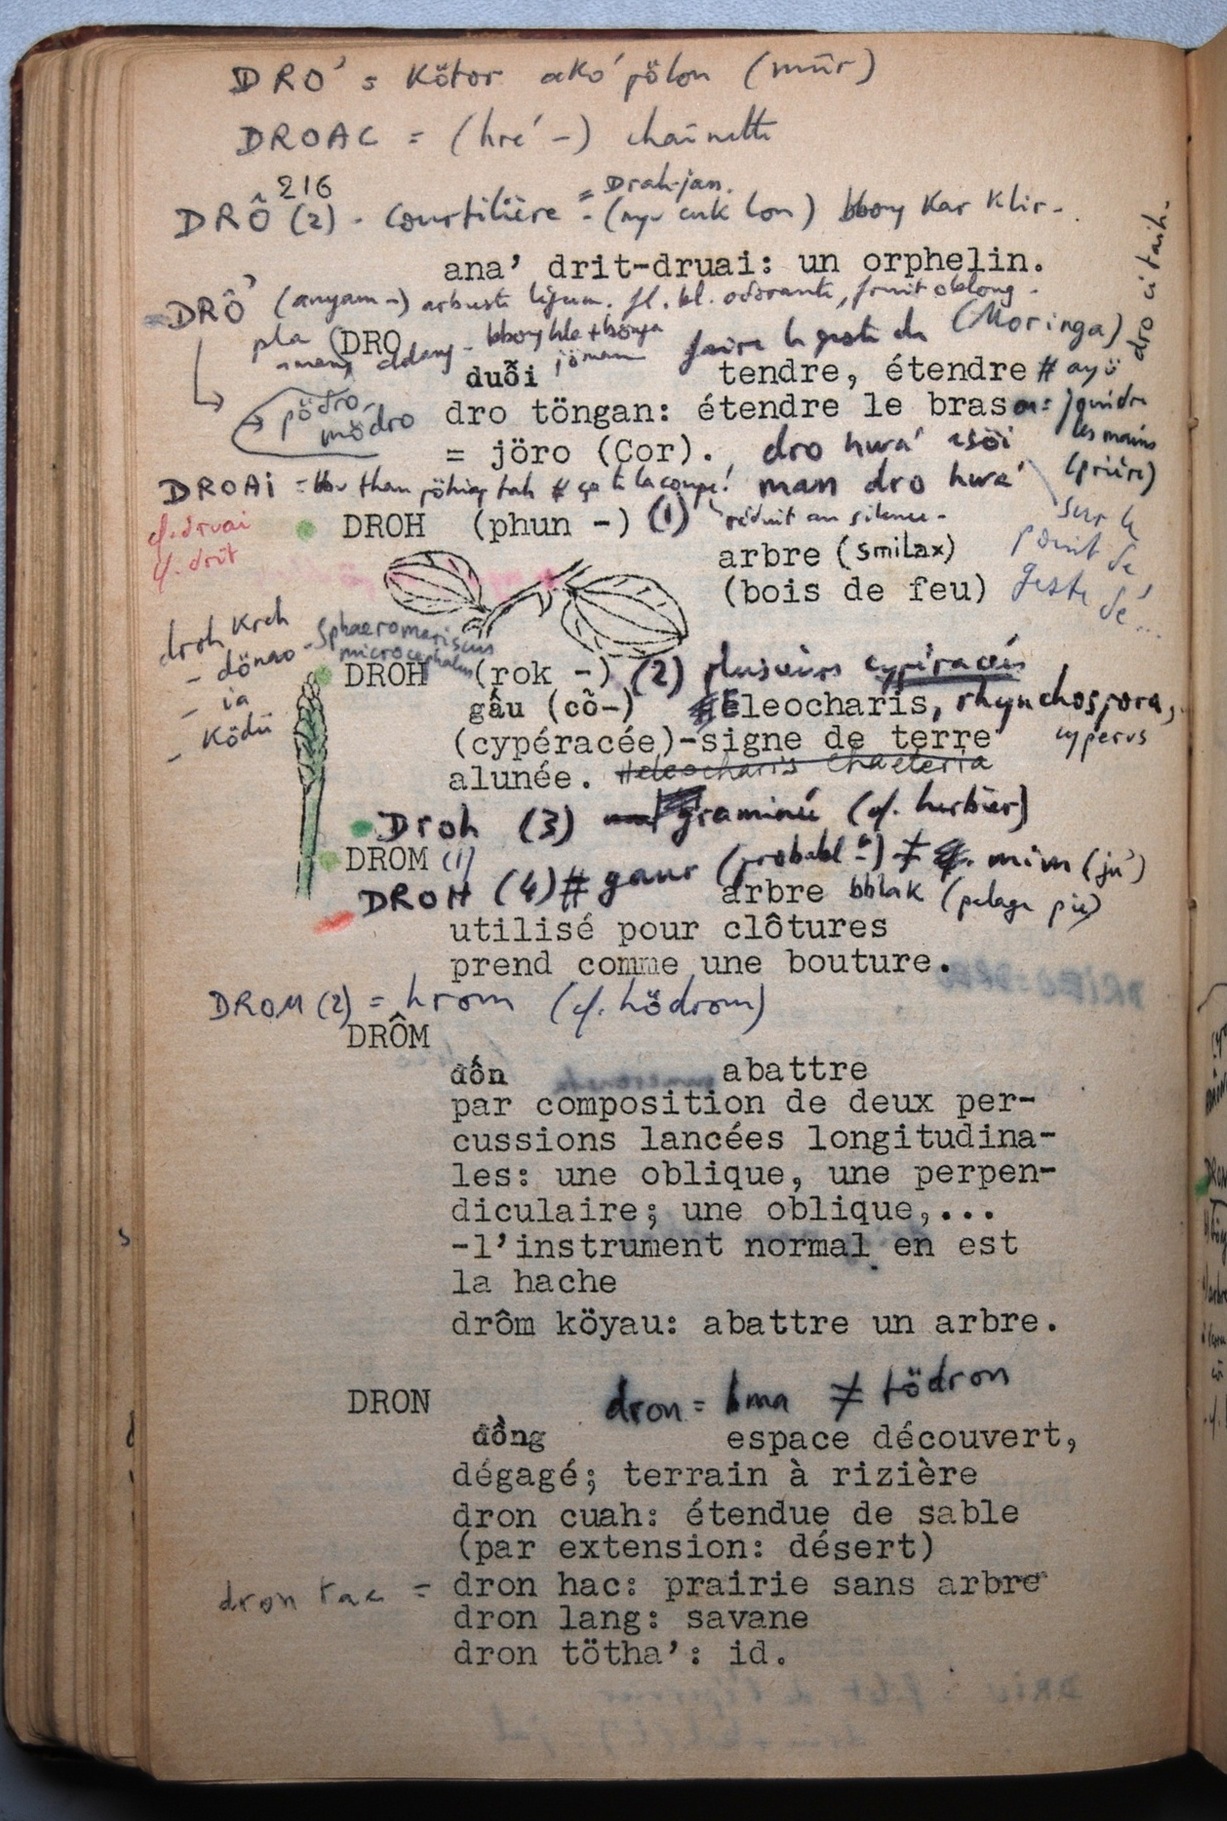 DRO' = Kötor akó pölon (mûr)
DROAC = (hré -) chaînette
216
= Drah-jan.
DRÔ (2) - courtilière - (nyv cuk lon) bbong Kar Klir-
ana’ drit-druai: un orphelin.
DRÔ' (anyam-) arbuste légum. fl. bl. odorante, fruit oblong -
(Moringa)
pla (DRO
faire le geste de
duỗi tendre, étendre # ayŏ
pödro,
mödro
dro töngan: étendre le bras = joindre
les mains
(prière)
= jöro (Cor). dro hwá
man dro hwá
DROAi = ça te la coupe!
réduit au silence -
sur le
point de
geste de...
cf. druai
cf. drit
DROH (phun -) (1)
arbre (smilax)
(bois de feu)
droh Kreh
- dönao
- ia
- Ködü
Sphaeromariscus
microcephalus
DROH (rok -) (2) plusieurs cypéracées
gấu (cỏ-) Eleocharis, rhynchospora,
cyperus
(cypéracée)-signe de terre
alunée. Heleocharis Chaeteria
Droh (3) graminée (cf. herbier)
DROM (1)
DROH (4) # gaur (probabl -) ≠ mim (jú)
arbre bblak (pelage pie)
utilisé pour clôtures
prend comme une bouture.
DROM (2) = hrom (cf. hödrom)
DRÔM
đốn abattre
par composition de deux per-
cussions lancées longitudina-
les: une oblique, une perpen-
diculaire; une oblique,...
-l’instrument normal en est
la hache
drôm köyau: abattre un arbre.
DRON dron = hma ≠ tödron
đồng espace découvert,
dégagé; terrain à rizière
dron cuah: étendue de sable
(par extension: désert)
dron tac = dron hac: prairie sans arbre
dron lang: savane
dron tötha’: id.